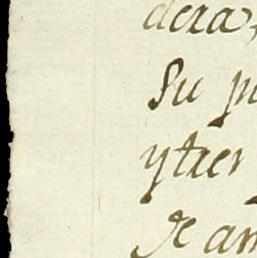 dera,
Su p
y tier
de am